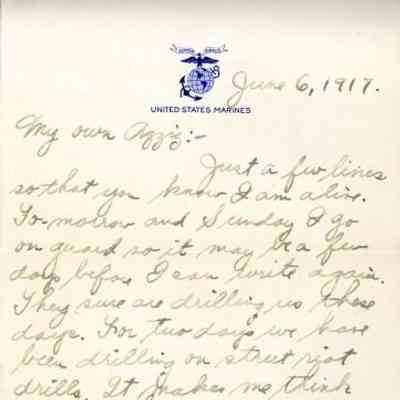 June 6, 1917.
UNITED STATES MARINES
My own
Just a few lines
so that you know I am alive.
To-morrow and Sunday I go
on guard so it may be a few
days before I can write again.
They sure are drilling us these
days. For two days we have
been drilling on street riot
drills. It makes me think